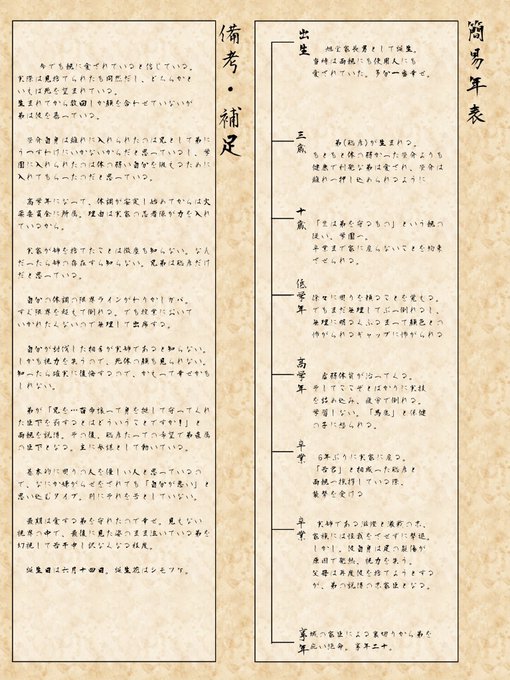 簡易年表
出生
旭堂家長男として誕生。
当時は両親にも使用人にも
愛されていた。多分一番幸せ。
三歳
弟(聡彦)が生まれる。
もともと体の弱かった
よりも
健康で利発な弟は愛され、
は
離れへ押し込められるように
十歳
「兄は弟を守るもの」という親の
従い、学園へ。
卒業まで家に戻らないことを約束
させられる。
低学年
徐々に周りを頼ることを覚える。
でもまだ無理してぶっ倒れるし、
無理に明るくふるまって顔色との
怖がられるギャップに怖がられる
高学年
虚弱体質が治ってくる。
そしてここぞとばかりに実技
を詰め込み、疲労で倒れる。
学習しない。「馬鹿」と保健
の子に怒られる。
卒業
6年ぶりに実家に戻る。
「若君」と相成った聡彦と
両親へ挨拶している際、
襲撃を受ける
卒業
実姉である
と激戦の末、
家族には怪我をさせずに撃退。
しかし、彼自身は足の裂傷が
原因で発熱、視力を失う。
父母は再度彼を捨てようとする
が、弟の説得の末家臣となる。
享年
城の家臣による裏切りから弟を
庇い絶命。享年二十。
備考・補足
今でも親に愛されていると信じている。
実際は見捨てられたも同然だし、どちらかと
いえば死を望まれている。
生まれてから数回しか顔を合わせていないが
弟は彼を慕っている。
自身は離れに入れられたのは兄として弟に
うつすわけにいかないからだと思っているし、学
園に入れられたのは体の弱い自分を鍛えるために
入れてもらったのだと思っている。
高学年になって、体調が安定し始めてからは火
薬委員会に所属。理由は実家の忍者隊が力を入れ
ているから。
実家が姉を捨てたことは微塵も知らない。なん
だったら姉の存在すら知らない。兄弟は聡彦だけ
だと思っている。
自分の体調の限界ラインがわりかしガバ。
すぐ限界を超えて倒れる。でも授業において
いかれたくないので無理して出席する。
自分が対峙した相手が実姉であると知らない。
しかも視力を失うので、死体の顔も見られない。
知ったら確実に後悔するので、かえって幸せかも
しれない。
弟が「兄を…宿命核って身を挺して守ってくれ
た臣下を罰するとはどういうことですか！」と
両親を説得。その後、聡彦たっての希望で弟直属
の臣下となる。主に参謀として動いている。
基本的に周りの人を優しい人と思っているの
で、なにか嫌がらせをされても「自分が悪い」と
思い込むタイプ。別にそれを苦としていない。
最期は愛する弟を守れたので幸せ。見えない
視界の中で、最後に見た姿のまま泣いている弟を
幻視して若干申し訳なくなる程度。
誕生日は六月十四日。誕生花はシモツケ。